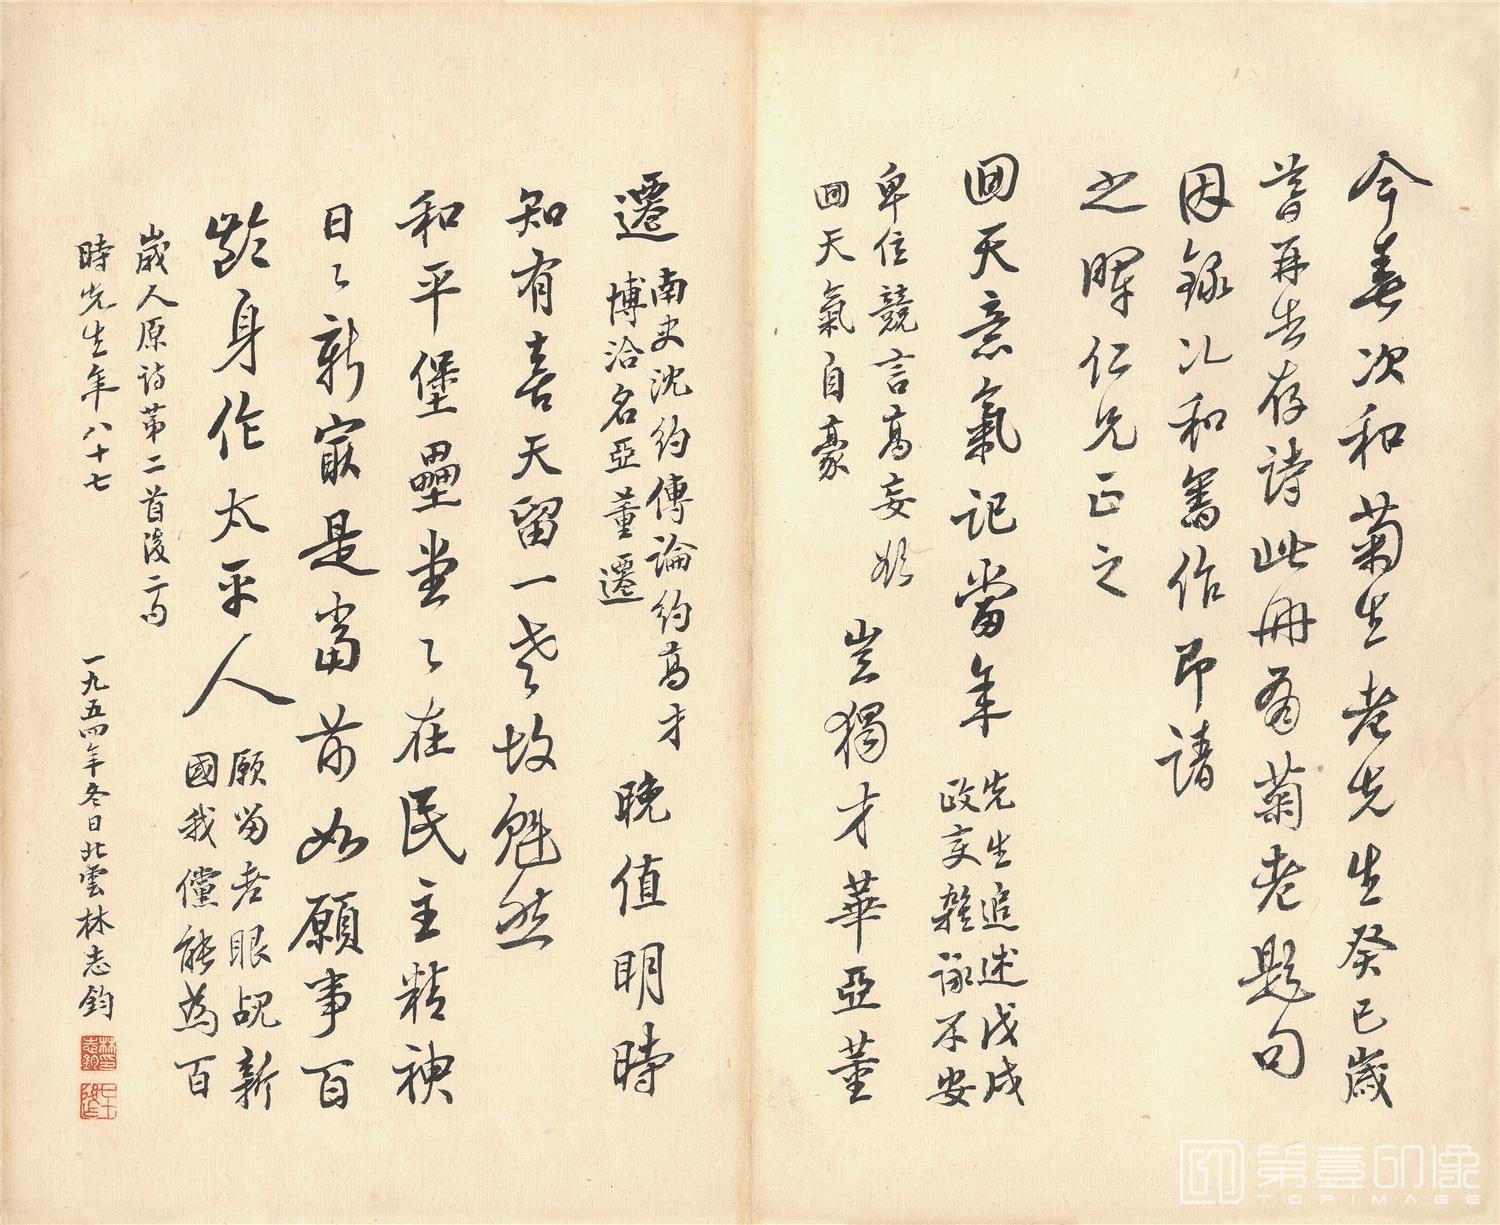 今春次和菊生老先生癸巳歲
暮再告存詩此冊有菊老題句
因錄以和舊作即請
之暉仁兄正之
回天意氣記當年
先生追述戊戌
政變雜詠不安
卑位競言高妄然
回天氣自豪
豈獨才華亞董
遷
南史沈約傳論約高才
博洽名亞董遷
晚值明時
知有喜天留一老故魁然
和平堡壘堂〻在民主精神
日〻新寂是當前如願事百
齡身作太平人
願留老眼覘新
國我儻能為百
歲人原詩第二首後二句
時先生年八十七
一九五四年冬日北雲林志鈞
林印志鈞
第壹印像
TOPIMAGE